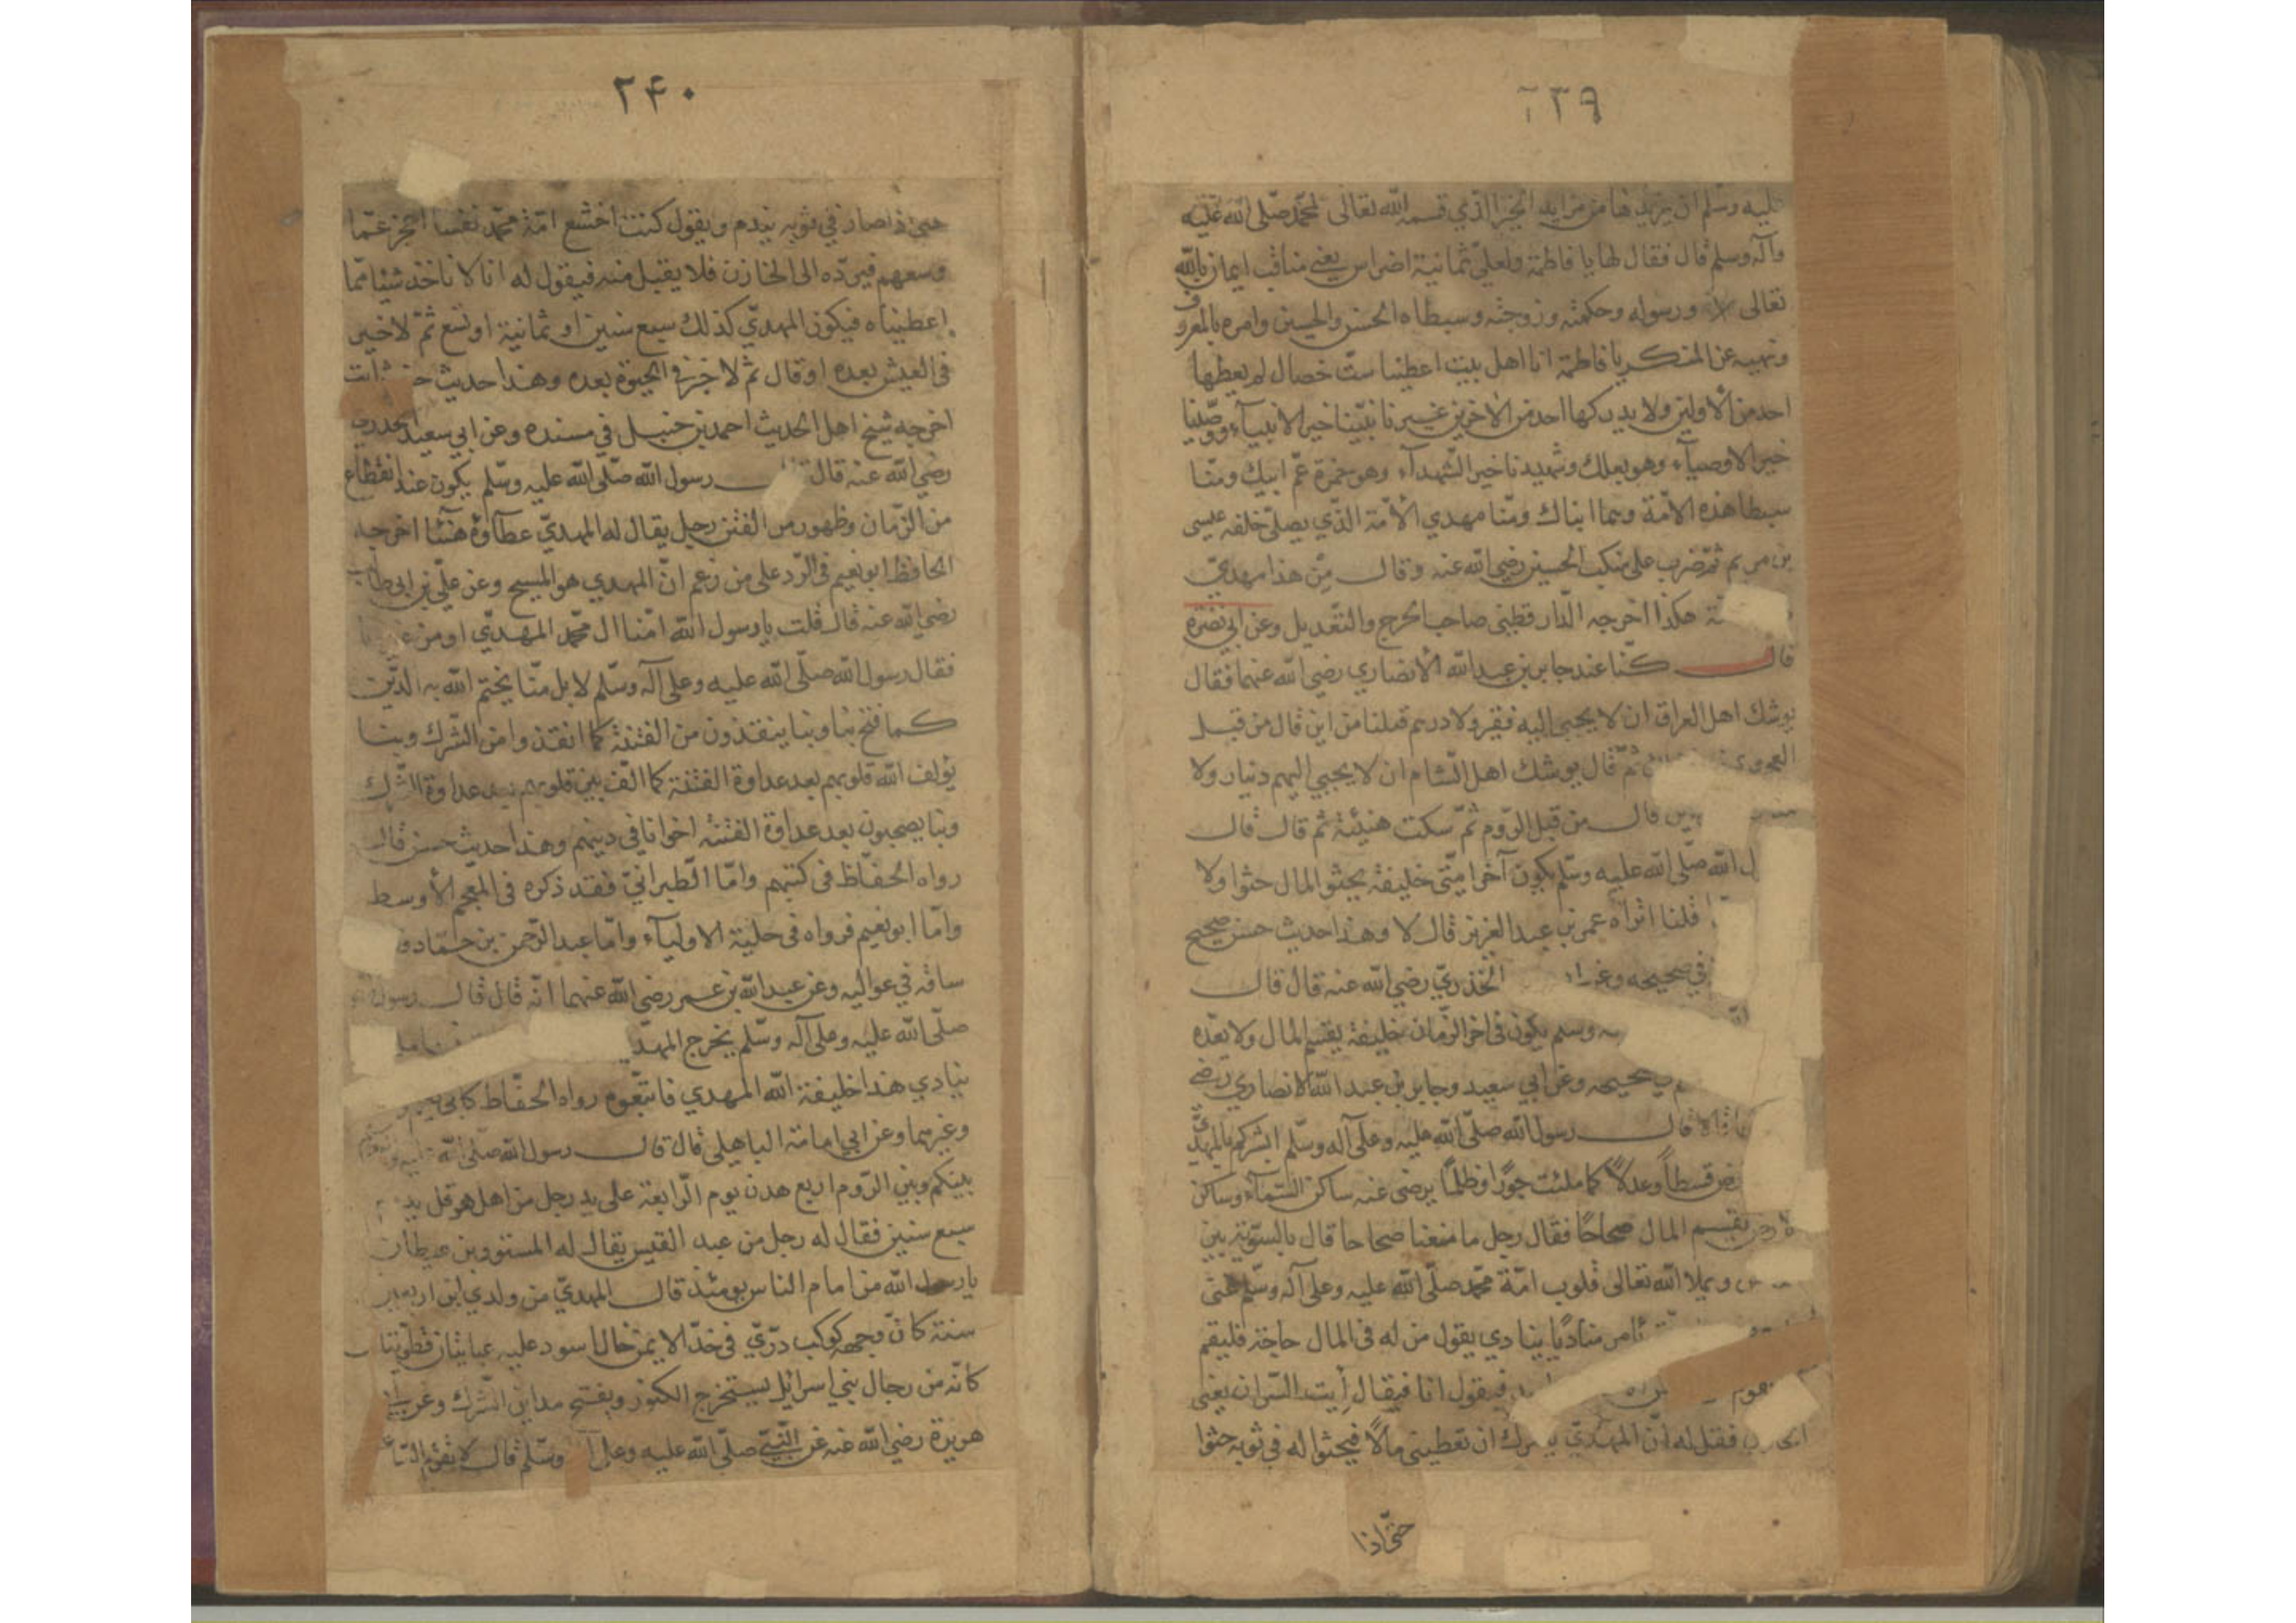 ٢٣٩
عليه وسلم ان يزيدها من مزايد الخير الذي قسمه الله تعالى لمحمد صلى الله عليه
وآله وسلم قال فقال لها يا فاطمة ولعلي ثمانية اضراس يعني مناقب ايمان بالله
تعالى ورسوله وحكمته وزوجته وسبطاه الحسن والحسين وامره بالمعروف
ونهيه عن المنكر يا فاطمة انا اهل بيت اعطينا ست خصال لم يعطها
احد من الأولين ولا يدركها احد من الآخرين غيرنا نبينا خير الانبيآء ووصينا
خير الاوصيآء وهو بعلك وشهيدنا خير الشهدآء وهو حمزة عم ابيك ومنا
سبطا هذه الامة وهما ابناك ومنا مهدي الأمة الذي يصلي خلفه عيسى
بن مريم ثم ضرب على منكب الحسين رضي الله عنه وقال من هذا مهدي
هكذا اخرجه الدارقطني صاحب الجرح والتعديل وعن ابي نضرة
قال كنا عند جابر بن عبد الله الأنصاري رضي الله عنهما فقال
يوشك اهل العراق ان لا يجبي اليه فقير ولا درهم قلنا من اين قال من قبل
العجم ثم قال يوشك اهل الشام ان لا يجبي اليهم دينار ولا
قال من قبل الروم ثم سكت هنيئة ثم قال قال
الله صلى الله عليه وسلم يكون آخر امتي خليفة يحثو المال حثوا ولا
قلنا اتراه عمر بن عبد العزيز قال لا وهذا حديث حسن صحيح
في صحيحه وعن الخذري رضي الله عنه قال قال
وسلم يكون في اخر الزمان خليفة يقسم المال ولا يعده
صحيحه وعن ابي سعيد وجابر بن عبد الله الانصاري رضي
قال رسول الله صلى الله عليه وعلى آله وسلم ابشركم بالمهدي
قسطاً وعدلاً كما ملئت جورًا وظلمًا يرضى عنه ساكن السمآء وساكن
يقسم المال صحاحًا فقال رجل ما معنا صحاحا قال بالسوية بين
ويملا الله تعالى قلوب امة محمد صلى الله عليه وعلى آله وسلم غنى
يأمر مناديًا ينادي يقول من له في المال حاجة فليقم
فيقول انا فيقال أيت السدان يعني
فقل له ان المهدي ان تعطيني مالًا فيحثوا له في ثوبه حثوا
حتى اذا
٢۴٠
حتى اذا صار في ثوبه يندم ويقول كنت اخشع امة محمد نفسا اعجز عما
وسعهم فيرده الى الخازن فلا يقبل منه فيقول له انا لا ناخذ شيئا مما
اعطيناه فيكون المهدي كذلك سبع سنين او ثمانية او تسع ثم لا خير
في العيش بعده او قال ثم لا خير في الحيوة بعده وهذا حديث
اخرجه شيخ اهل الحديث احمد بن حنبل في مسنده وعن ابي سعيد الخدري
رضي الله عنه قال رسول الله صلى الله عليه وسلم يكون عند انقطاع
من الزمان وظهور من الفتن رجل يقال له المهدي عطآؤه هنئا اخرجه
الحافظ ابو نعيم في الرد على من زعم ان المهدي هو المسيح وعن علي بن ابي طالب
رضي الله عنه قال قلت يا رسول الله امنا ال محمد المهدي او من غيرنا
فقال رسول الله صلى الله عليه وعلى آله وسلم لا بل منا يختم الله به الدين
كما فتح بنا وبنا ينقذون من الفتنة كما انقذوا من الشرك وبنا
يؤلف الله قلوبهم بعد عداوة الفتنة كما الف بين قلوبهم بعد عداوة الشرك
وبنا يصبحون بعد عداوة الفتنه اخوانا في دينهم وهذا حديث حسن قال
رواه الحفاظ في كتبهم واما الطبراني فقد ذكره في المعجم الأوسط
واما ابو نعيم فرواه في حلية الاوليآء واما عبد الرحمن بن حماد و
ساقه في عواليه وعن عبد الله بن عمر رضي الله عنهما انه قال قال رسول
صلى الله عليه وعلى آله وسلم يخرج
ينادي هذا خليفة الله المهدي فاتبعوه رواه الحفاظ
وغيرهما وعن ابي امامة الباهلي قال قال رسول الله صلى الله
بينكم وبين الروم اربع هدن يوم الرابعة على يد رجل من اهل هرقل
سبع سنين فقال له رجل من عبد القيس يقال له المستورد بن غيطان
يا رسول الله من امام الناس يومئذ قال المهدي من ولدي ابن اربعين
سنة كان وجهه كوكب دري في خده الايمن خال اسود عليه عبايتان قطوتيتان
كانه من رجال بني اسرائيل يستخرج الكنوز ويفتح مداين الشرك وعن ابي
هريرة رضي الله عنه عن النبي صلى الله عليه وعلى وسلم قال لا تقوم